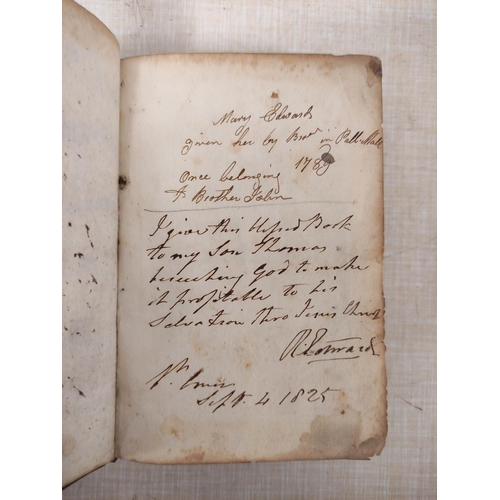 Mary Edward
given her by Bror in Pall Mall
178
Once belonging
to Brother John
I give this blessed Book
to my Son Thomas
beseeching God to make
it profitable to his
Salvation thro Jesus Christ
R Edward
Sept. 4 1825